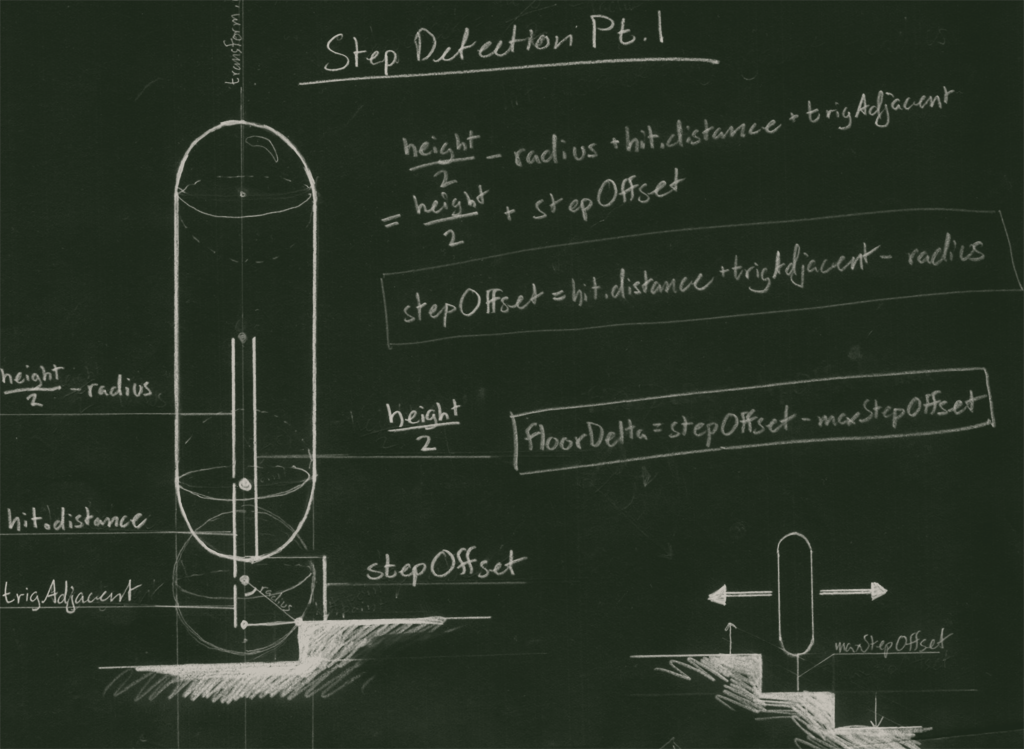 Step Detection Pt.1
transform.
height/2 - radius + hit.distance + trigAdjacent
= height/2 + stepOffset
stepOffset = hit.distance + trigAdjacent - radius
height/2 - radius
height/2
floorDelta = stepOffset - maxStepOffset
hit.distance
stepOffset
trigAdjacent
radius
maxStepOffset